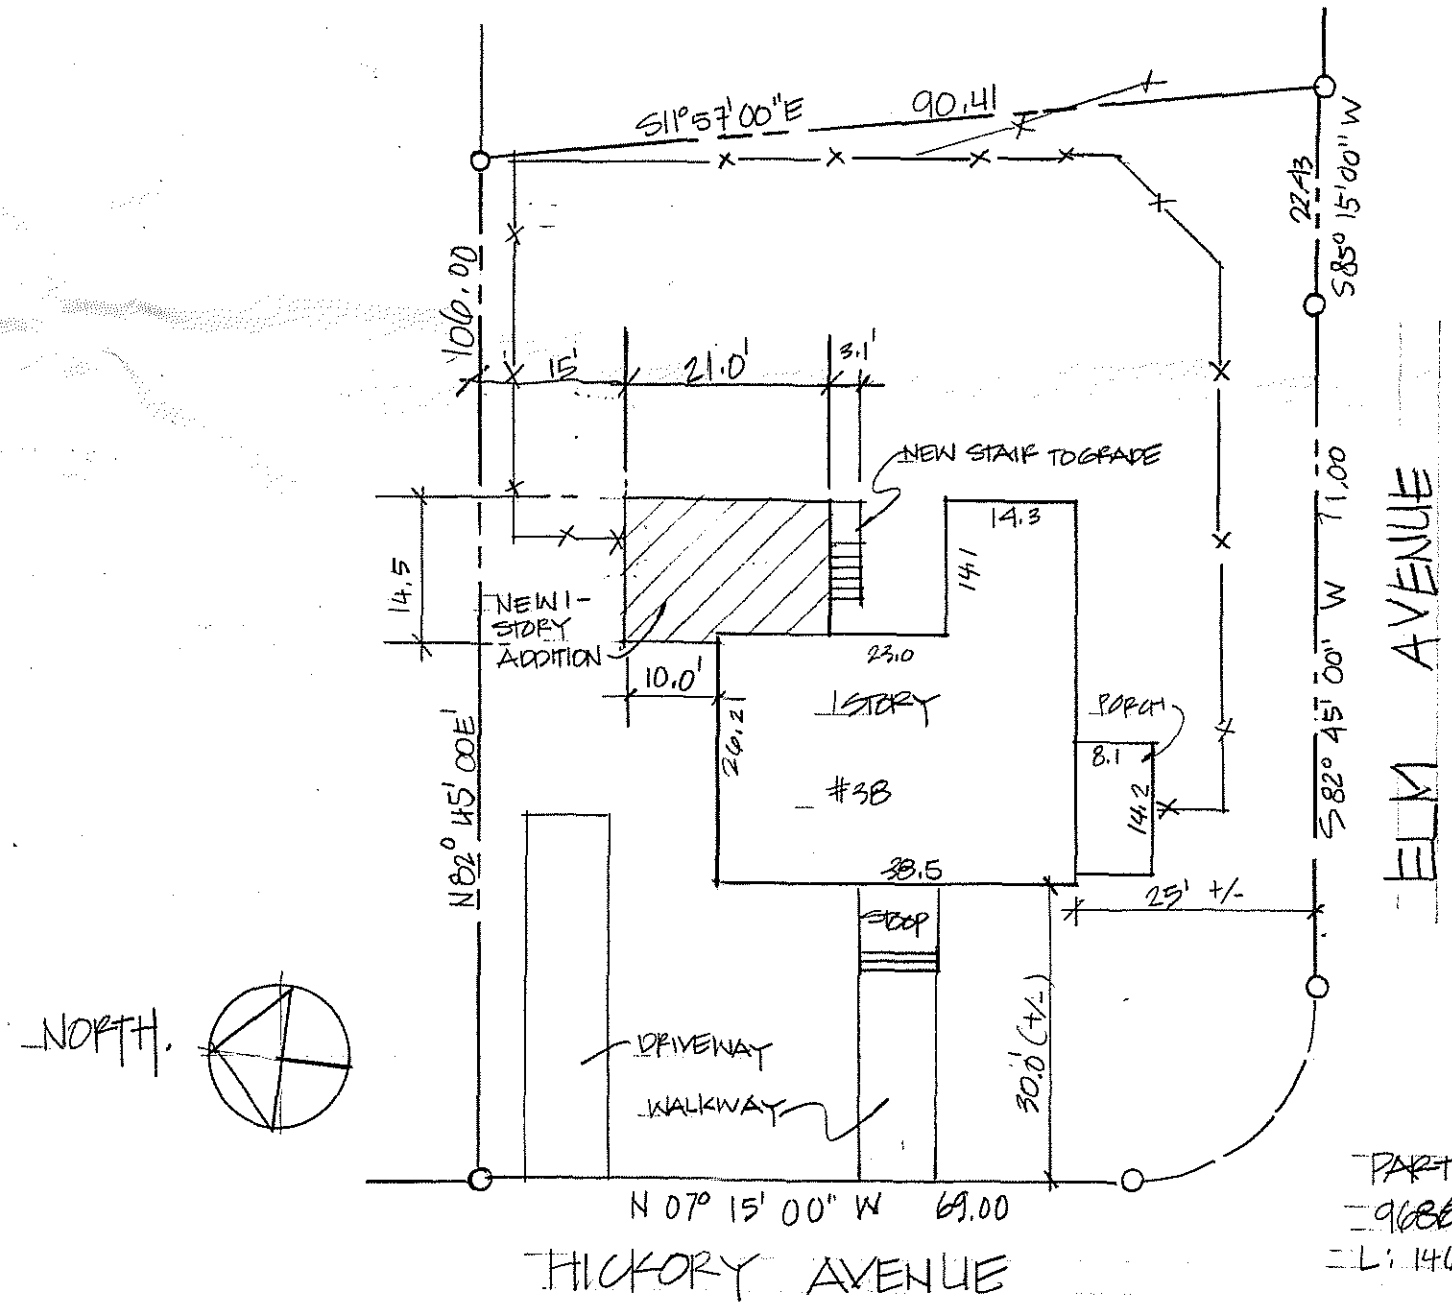 S11° 57' 00" E 90.41
22.43
S85° 15' 00" W
106.00
15'
21.0'
3.1'
NEW STAIR TO GRADE
14.3
14.1
14.5
NEW 1-
STORY
ADDITION
10.0'
23.0
1 STORY
26.2
#38
PORCH
8.1
14.2
38.5
25' +/-
N82° 45' 00E'
S82° 45' 00" W 71.00
ELM AVENUE
STOOP
30.0' (+/-)
NORTH.
DRIVEWAY
WALKWAY
N 07° 15' 00" W 69.00
HICKORY AVENUE
PART
L: 146